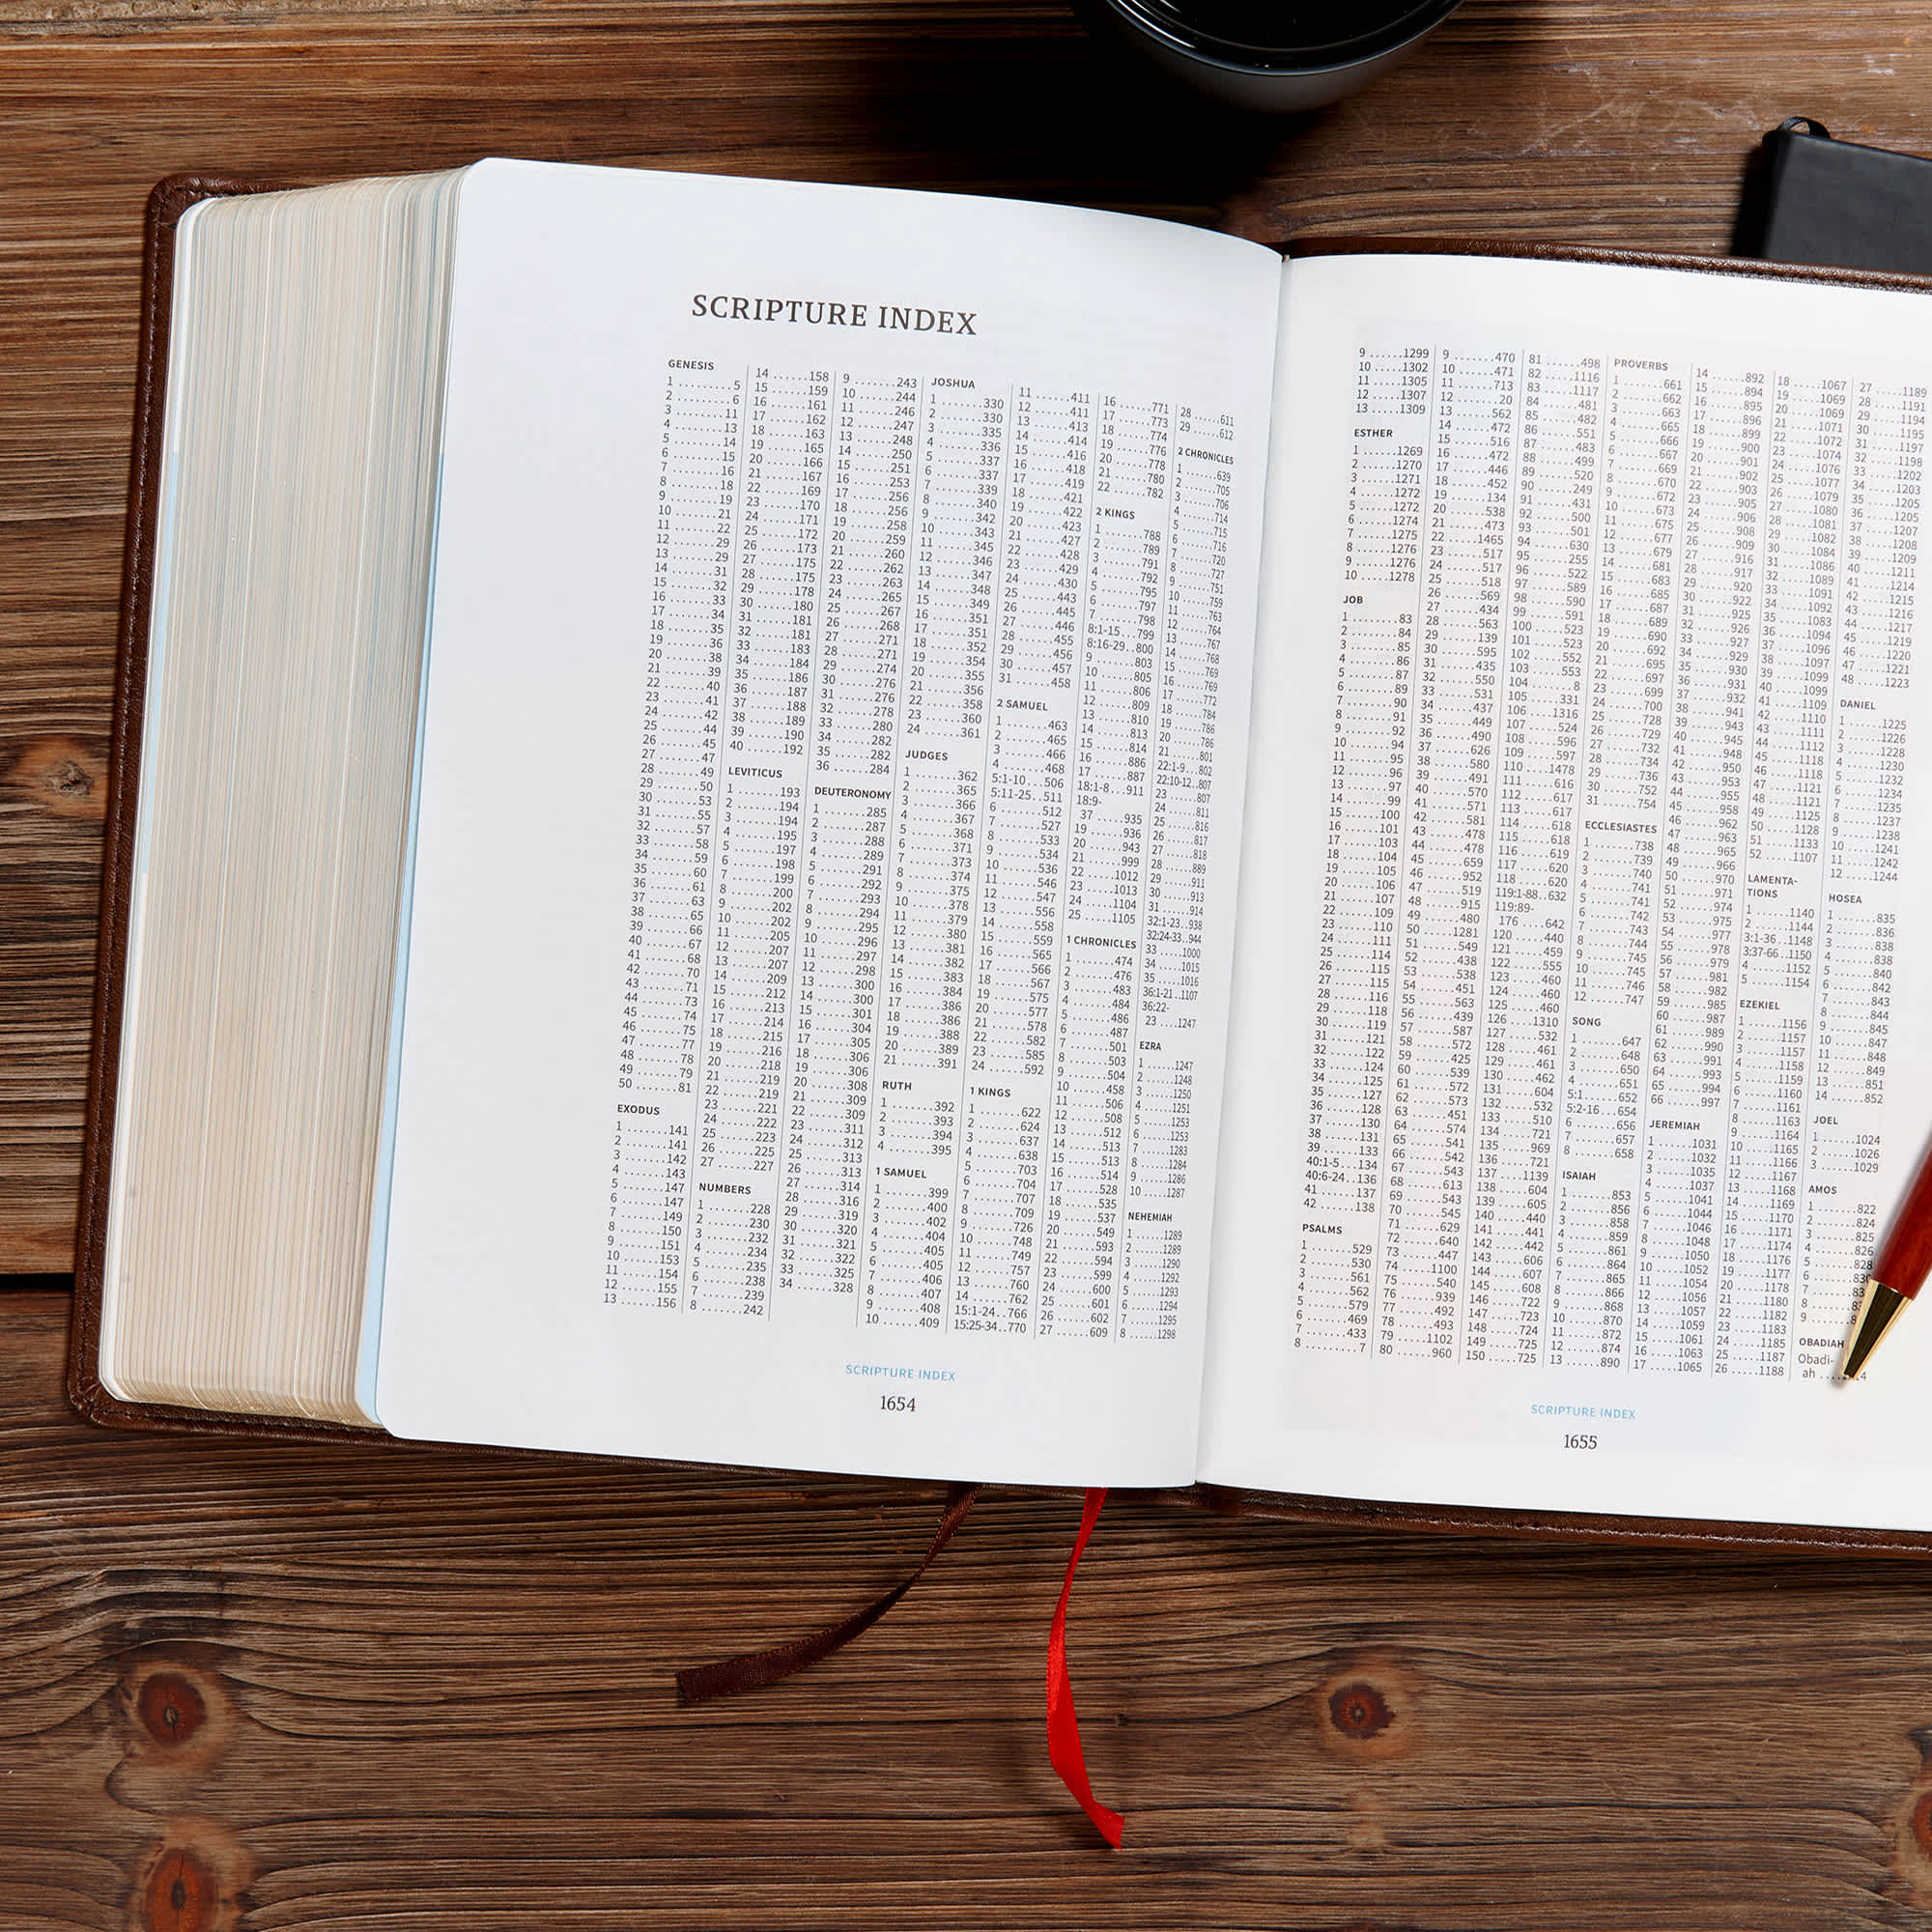 SCRIPTURE INDEX
GENESIS
1 .........5
2 .........6
3 ........11
4 ........13
5 ........14
6 ........15
7 ........16
8 ........18
9 ........19
10 .......21
11 .......22
12 .......29
13 .......29
14 .......31
15 .......32
16 .......33
17 .......34
18 .......35
19 .......36
20 .......38
21 .......39
22 .......40
23 .......41
24 .......42
25 .......44
26 .......45
27 .......47
28 .......49
29 .......50
30 .......53
31 .......55
32 .......57
33 .......58
34 .......59
35 .......60
36 .......61
37 .......63
38 .......65
39 .......66
40 .......67
41 .......68
42 .......70
43 .......71
44 .......73
45 .......74
46 .......75
47 .......77
48 .......78
49 .......79
50 .......81
EXODUS
1 .......141
2 .......141
3 .......142
4 .......143
5 .......147
6 .......147
7 .......149
8 .......150
9 .......151
10 ......153
11 ......154
12 ......155
13 ......156
14 ......158
15 ......159
16 ......161
17 ......162
18 ......163
19 ......165
20 ......166
21 ......167
22 ......169
23 ......170
24 ......171
25 ......172
26 ......173
27 ......175
28 ......175
29 ......178
30 ......180
31 ......181
32 ......181
33 ......183
34 ......184
35 ......186
36 ......187
37 ......188
38 ......189
39 ......190
40 ......192
LEVITICUS
1 .......193
2 .......194
3 .......194
4 .......195
5 .......197
6 .......198
7 .......199
8 .......200
9 .......202
10 ......202
11 ......205
12 ......207
13 ......207
14 ......209
15 ......212
16 ......213
17 ......214
18 ......215
19 ......216
20 ......218
21 ......219
22 ......219
23 ......221
24 ......222
25 ......223
26 ......225
27 ......227
NUMBERS
1 .......228
2 .......230
3 .......232
4 .......234
5 .......235
6 .......238
7 .......239
8 .......242
9 .......243
10 ......244
11 ......246
12 ......247
13 ......248
14 ......250
15 ......251
16 ......253
17 ......256
18 ......256
19 ......258
20 ......259
21 ......260
22 ......262
23 ......263
24 ......265
25 ......267
26 ......268
27 ......271
28 ......271
29 ......274
30 ......276
31 ......276
32 ......278
33 ......280
34 ......282
35 ......282
36 ......284
DEUTERONOMY
1 .......285
2 .......287
3 .......288
4 .......289
5 .......291
6 .......292
7 .......293
8 .......294
9 .......295
10 ......296
11 ......297
12 ......298
13 ......300
14 ......300
15 ......301
16 ......304
17 ......305
18 ......306
19 ......306
20 ......308
21 ......309
22 ......309
23 ......311
24 ......312
25 ......313
26 ......313
27 ......314
28 ......316
29 ......319
30 ......320
31 ......321
32 ......322
33 ......325
34 ......328
JOSHUA
1 .......330
2 .......330
3 .......335
4 .......336
5 .......337
6 .......337
7 .......339
8 .......340
9 .......342
10 ......343
11 ......345
12 ......346
13 ......347
14 ......348
15 ......349
16 ......351
17 ......351
18 ......352
19 ......354
20 ......355
21 ......356
22 ......358
23 ......360
24 ......361
JUDGES
1 .......362
2 .......365
3 .......366
4 .......367
5 .......368
6 .......371
7 .......373
8 .......374
9 .......375
10 ......378
11 ......379
12 ......380
13 ......381
14 ......382
15 ......383
16 ......384
17 ......386
18 ......386
19 ......388
20 ......389
21 ......391
RUTH
1 .......392
2 .......393
3 .......394
4 .......395
1 SAMUEL
1 .......399
2 .......400
3 .......402
4 .......404
5 .......405
6 .......405
7 .......406
8 .......407
9 .......408
10 ......409
11 ......411
12 ......411
13 ......413
14 ......414
15 ......416
16 ......418
17 ......419
18 ......421
19 ......422
20 ......423
21 ......427
22 ......428
23 ......429
24 ......430
25 ......443
26 ......445
27 ......446
28 ......455
29 ......456
30 ......457
31 ......458
2 SAMUEL
1 .......463
2 .......465
3 .......466
4 .......468
5:1-10 ...506
5:11-25 ..511
6 .......512
7 .......527
8 .......533
9 .......534
10 ......536
11 ......546
12 ......547
13 ......556
14 ......558
15 ......559
16 ......565
17 ......566
18 ......567
19 ......575
20 ......577
21 ......578
22 ......582
23 ......585
24 ......592
1 KINGS
1 .......622
2 .......624
3 .......637
4 .......638
5 .......703
6 .......704
7 .......707
8 .......709
9 .......726
10 ......748
11 ......749
12 ......757
13 ......760
14 ......762
15:1-24 ..766
15:25-34 ..770
16 ......771
17 ......773
18 ......774
19 ......776
20 ......778
21 ......780
22 ......782
2 KINGS
1 .......788
2 .......789
3 .......791
4 .......792
5 .......795
6 .......797
7 .......798
8:1-15 ...799
8:16-29 ..800
9 .......803
10 ......805
11 ......806
12 ......809
13 ......810
14 ......813
15 ......814
16 ......886
17 ......887
18:1-8 ...911
18:9-
37 .....935
19 ......936
20 ......943
21 ......999
22 .....1012
23 .....1013
24 .....1104
25 .....1105
1 CHRONICLES
1 .......474
2 .......476
3 .......483
4 .......484
5 .......486
6 .......487
7 .......501
8 .......503
9 .......504
10 ......458
11 ......506
12 ......508
13 ......512
14 ......513
15 ......513
16 ......514
17 ......528
18 ......535
19 ......537
20 ......549
21 ......593
22 ......594
23 ......599
24 ......600
25 ......601
26 ......602
27 ......609
28 ......611
29 ......612
2 CHRONICLES
1 .......639
2 .......705
3 .......706
4 .......714
5 .......715
6 .......716
7 .......720
8 .......727
9 .......751
10 ......759
11 ......763
12 ......764
13 ......767
14 ......768
15 ......769
16 ......769
17 ......772
18 ......784
19 ......786
20 ......786
21 ......801
22:1-9 ...802
22:10-12 ..807
23 ......807
24 ......811
25 ......816
26 ......817
27 ......818
28 ......889
29 ......911
30 ......913
31 ......914
32:1-23 ..938
32:24-33 ..944
33 .....1000
34 .....1015
35 .....1016
36:1-21 ..1107
36:22-
23 ....1247
EZRA
1 ......1247
2 ......1248
3 ......1250
4 ......1251
5 ......1253
6 ......1253
7 ......1283
8 ......1284
9 ......1286
10 .....1287
NEHEMIAH
1 ......1289
2 ......1289
3 ......1290
4 ......1292
5 ......1293
6 ......1294
7 ......1295
8 ......1298
SCRIPTURE INDEX
1654
9 ......1299
10 .....1302
11 .....1305
12 .....1307
13 .....1309
ESTHER
1 ......1269
2 ......1270
3 ......1271
4 ......1272
5 ......1272
6 ......1274
7 ......1275
8 ......1276
9 ......1276
10 .....1278
JOB
1 ........83
2 ........84
3 ........85
4 ........86
5 ........87
6 ........89
7 ........90
8 ........91
9 ........92
10 .......94
11 .......95
12 .......96
13 .......97
14 .......99
15 ......100
16 ......101
17 ......103
18 ......104
19 ......105
20 ......106
21 ......107
22 ......109
23 ......110
24 ......111
25 ......114
26 ......115
27 ......115
28 ......116
29 ......118
30 ......119
31 ......121
32 ......122
33 ......124
34 ......125
35 ......127
36 ......128
37 ......130
38 ......131
39 ......133
40:1-5 ...134
40:6-24 ..136
41 ......137
42 ......138
PSALMS
1 .......529
2 .......530
3 .......561
4 .......562
5 .......579
6 .......469
7 .......433
8 .........7
9 .......470
10 ......471
11 ......713
12 .......20
13 ......562
14 ......472
15 ......516
16 ......472
17 ......446
18 ......452
19 ......134
20 ......538
21 ......473
22 .....1465
23 ......517
24 ......517
25 ......518
26 ......569
27 ......434
28 ......563
29 ......139
30 ......595
31 ......435
32 ......550
33 ......531
34 ......437
35 ......449
36 ......490
37 ......626
38 ......580
39 ......491
40 ......570
41 ......571
42 ......581
43 ......478
44 ......478
45 ......659
46 ......952
47 ......519
48 ......915
49 ......480
50 .....1281
51 ......549
52 ......438
53 ......538
54 ......451
55 ......563
56 ......439
57 ......587
58 ......572
59 ......425
60 ......539
61 ......572
62 ......573
63 ......451
64 ......574
65 ......541
66 ......542
67 ......543
68 ......613
69 ......543
70 ......545
71 ......629
72 ......640
73 ......447
74 .....1100
75 ......540
76 ......939
77 ......492
78 ......493
79 .....1102
80 ......960
81 ......498
82 .....1116
83 .....1117
84 ......481
85 ......482
86 ......551
87 ......483
88 ......499
89 ......520
90 ......249
91 ......431
92 ......500
93 ......501
94 ......630
95 ......255
96 ......522
97 ......589
98 ......590
99 ......591
100 .....523
101 .....523
102 .....552
103 .....554
104 .......8
105 .....331
106 ....1316
107 .....524
108 .....596
109 .....597
110 ....1478
111 .....616
112 .....617
113 .....617
114 .....618
115 .....618
116 .....619
117 .....620
118 .....620
119:1-88 ..632
119:89-
176 ....642
120 .....440
121 .....459
122 .....555
123 .....460
124 .....460
125 .....460
126 ....1310
127 .....532
128 .....461
129 .....461
130 .....462
131 .....604
132 .....532
133 .....510
134 .....721
135 .....969
136 .....721
137 ....1139
138 .....604
139 .....605
140 .....440
141 .....441
142 .....442
143 .....606
144 .....607
145 .....608
146 .....722
147 .....723
148 .....724
149 .....725
150 .....725
PROVERBS
1 .......661
2 .......662
3 .......663
4 .......665
5 .......666
6 .......667
7 .......669
8 .......670
9 .......672
10 ......673
11 ......675
12 ......677
13 ......679
14 ......681
15 ......683
16 ......685
17 ......687
18 ......689
19 ......690
20 ......692
21 ......695
22 ......697
23 ......699
24 ......700
25 ......728
26 ......729
27 ......732
28 ......734
29 ......736
30 ......752
31 ......754
ECCLESIASTES
1 .......738
2 .......739
3 .......740
4 .......741
5 .......741
6 .......742
7 .......743
8 .......744
9 .......745
10 ......745
11 ......746
12 ......747
SONG
1 .......647
2 .......648
3 .......650
4 .......651
5:1 ......652
5:2-16 ...654
6 .......656
7 .......657
8 .......658
ISAIAH
1 .......853
2 .......856
3 .......858
4 .......859
5 .......861
6 .......864
7 .......865
8 .......866
9 .......868
10 ......870
11 ......872
12 ......874
13 ......890
14 ......892
15 ......894
16 ......895
17 ......896
18 ......899
19 ......900
20 ......901
21 ......902
22 ......903
23 ......905
24 ......906
25 ......908
26 ......909
27 ......916
28 ......917
29 ......920
30 ......922
31 ......925
32 ......926
33 ......927
34 ......929
35 ......930
36 ......931
37 ......932
38 ......941
39 ......943
40 ......945
41 ......948
42 ......950
43 ......953
44 ......955
45 ......958
46 ......962
47 ......963
48 ......965
49 ......966
50 ......970
51 ......971
52 ......974
53 ......975
54 ......977
55 ......978
56 ......979
57 ......981
58 ......982
59 ......985
60 ......987
61 ......989
62 ......990
63 ......991
64 ......993
65 ......994
66 ......997
JEREMIAH
1 ......1031
2 ......1032
3 ......1035
4 ......1037
5 ......1041
6 ......1044
7 ......1046
8 ......1048
9 ......1050
10 .....1052
11 .....1054
12 .....1056
13 .....1057
14 .....1059
15 .....1061
16 .....1063
17 .....1065
18 .....1067
19 .....1069
20 .....1069
21 .....1071
22 .....1072
23 .....1074
24 .....1076
25 .....1077
26 .....1079
27 .....1080
28 .....1081
29 .....1082
30 .....1084
31 .....1086
32 .....1089
33 .....1091
34 .....1092
35 .....1083
36 .....1094
37 .....1096
38 .....1097
39 .....1099
40 .....1099
41 .....1109
42 .....1110
43 .....1111
44 .....1112
45 .....1118
46 .....1118
47 .....1121
48 .....1121
49 .....1125
50 .....1128
51 .....1133
52 .....1107
LAMENTA-
TIONS
1 ......1140
2 ......1144
3:1-36 ..1148
3:37-66 ..1150
4 ......1152
5 ......1154
EZEKIEL
1 ......1156
2 ......1157
3 ......1157
4 ......1158
5 ......1159
6 ......1160
7 ......1161
8 ......1163
9 ......1164
10 .....1165
11 .....1166
12 .....1167
13 .....1168
14 .....1169
15 .....1170
16 .....1171
17 .....1174
18 .....1176
19 .....1177
20 .....1178
21 .....1180
22 .....1182
23 .....1183
24 .....1185
25 .....1187
26 .....1188
27 .....1189
28 .....1191
29 .....1194
30 .....1195
31 .....1197
32 .....1198
33 .....1202
34 .....1203
35 .....1205
36 .....1205
37 .....1207
38 .....1208
39 .....1209
40 .....1211
41 .....1214
42 .....1215
43 .....1216
44 .....1217
45 .....1219
46 .....1220
47 .....1221
48 .....1223
DANIEL
1 ......1225
2 ......1226
3 ......1228
4 ......1230
5 ......1232
6 ......1234
7 ......1235
8 ......1237
9 ......1238
10 .....1241
11 .....1242
12 .....1244
HOSEA
1 .......835
2 .......836
3 .......838
4 .......838
5 .......840
6 .......842
7 .......843
8 .......844
9 .......845
10 ......847
11 ......848
12 ......849
13 ......851
14 ......852
JOEL
1 ......1024
2 ......1026
3 ......1029
AMOS
1 .......822
2 .......824
3 .......825
4 .......826
5 .......828
6
7
8
9
OBADIAH
Obadi-
ah
SCRIPTURE INDEX
1655